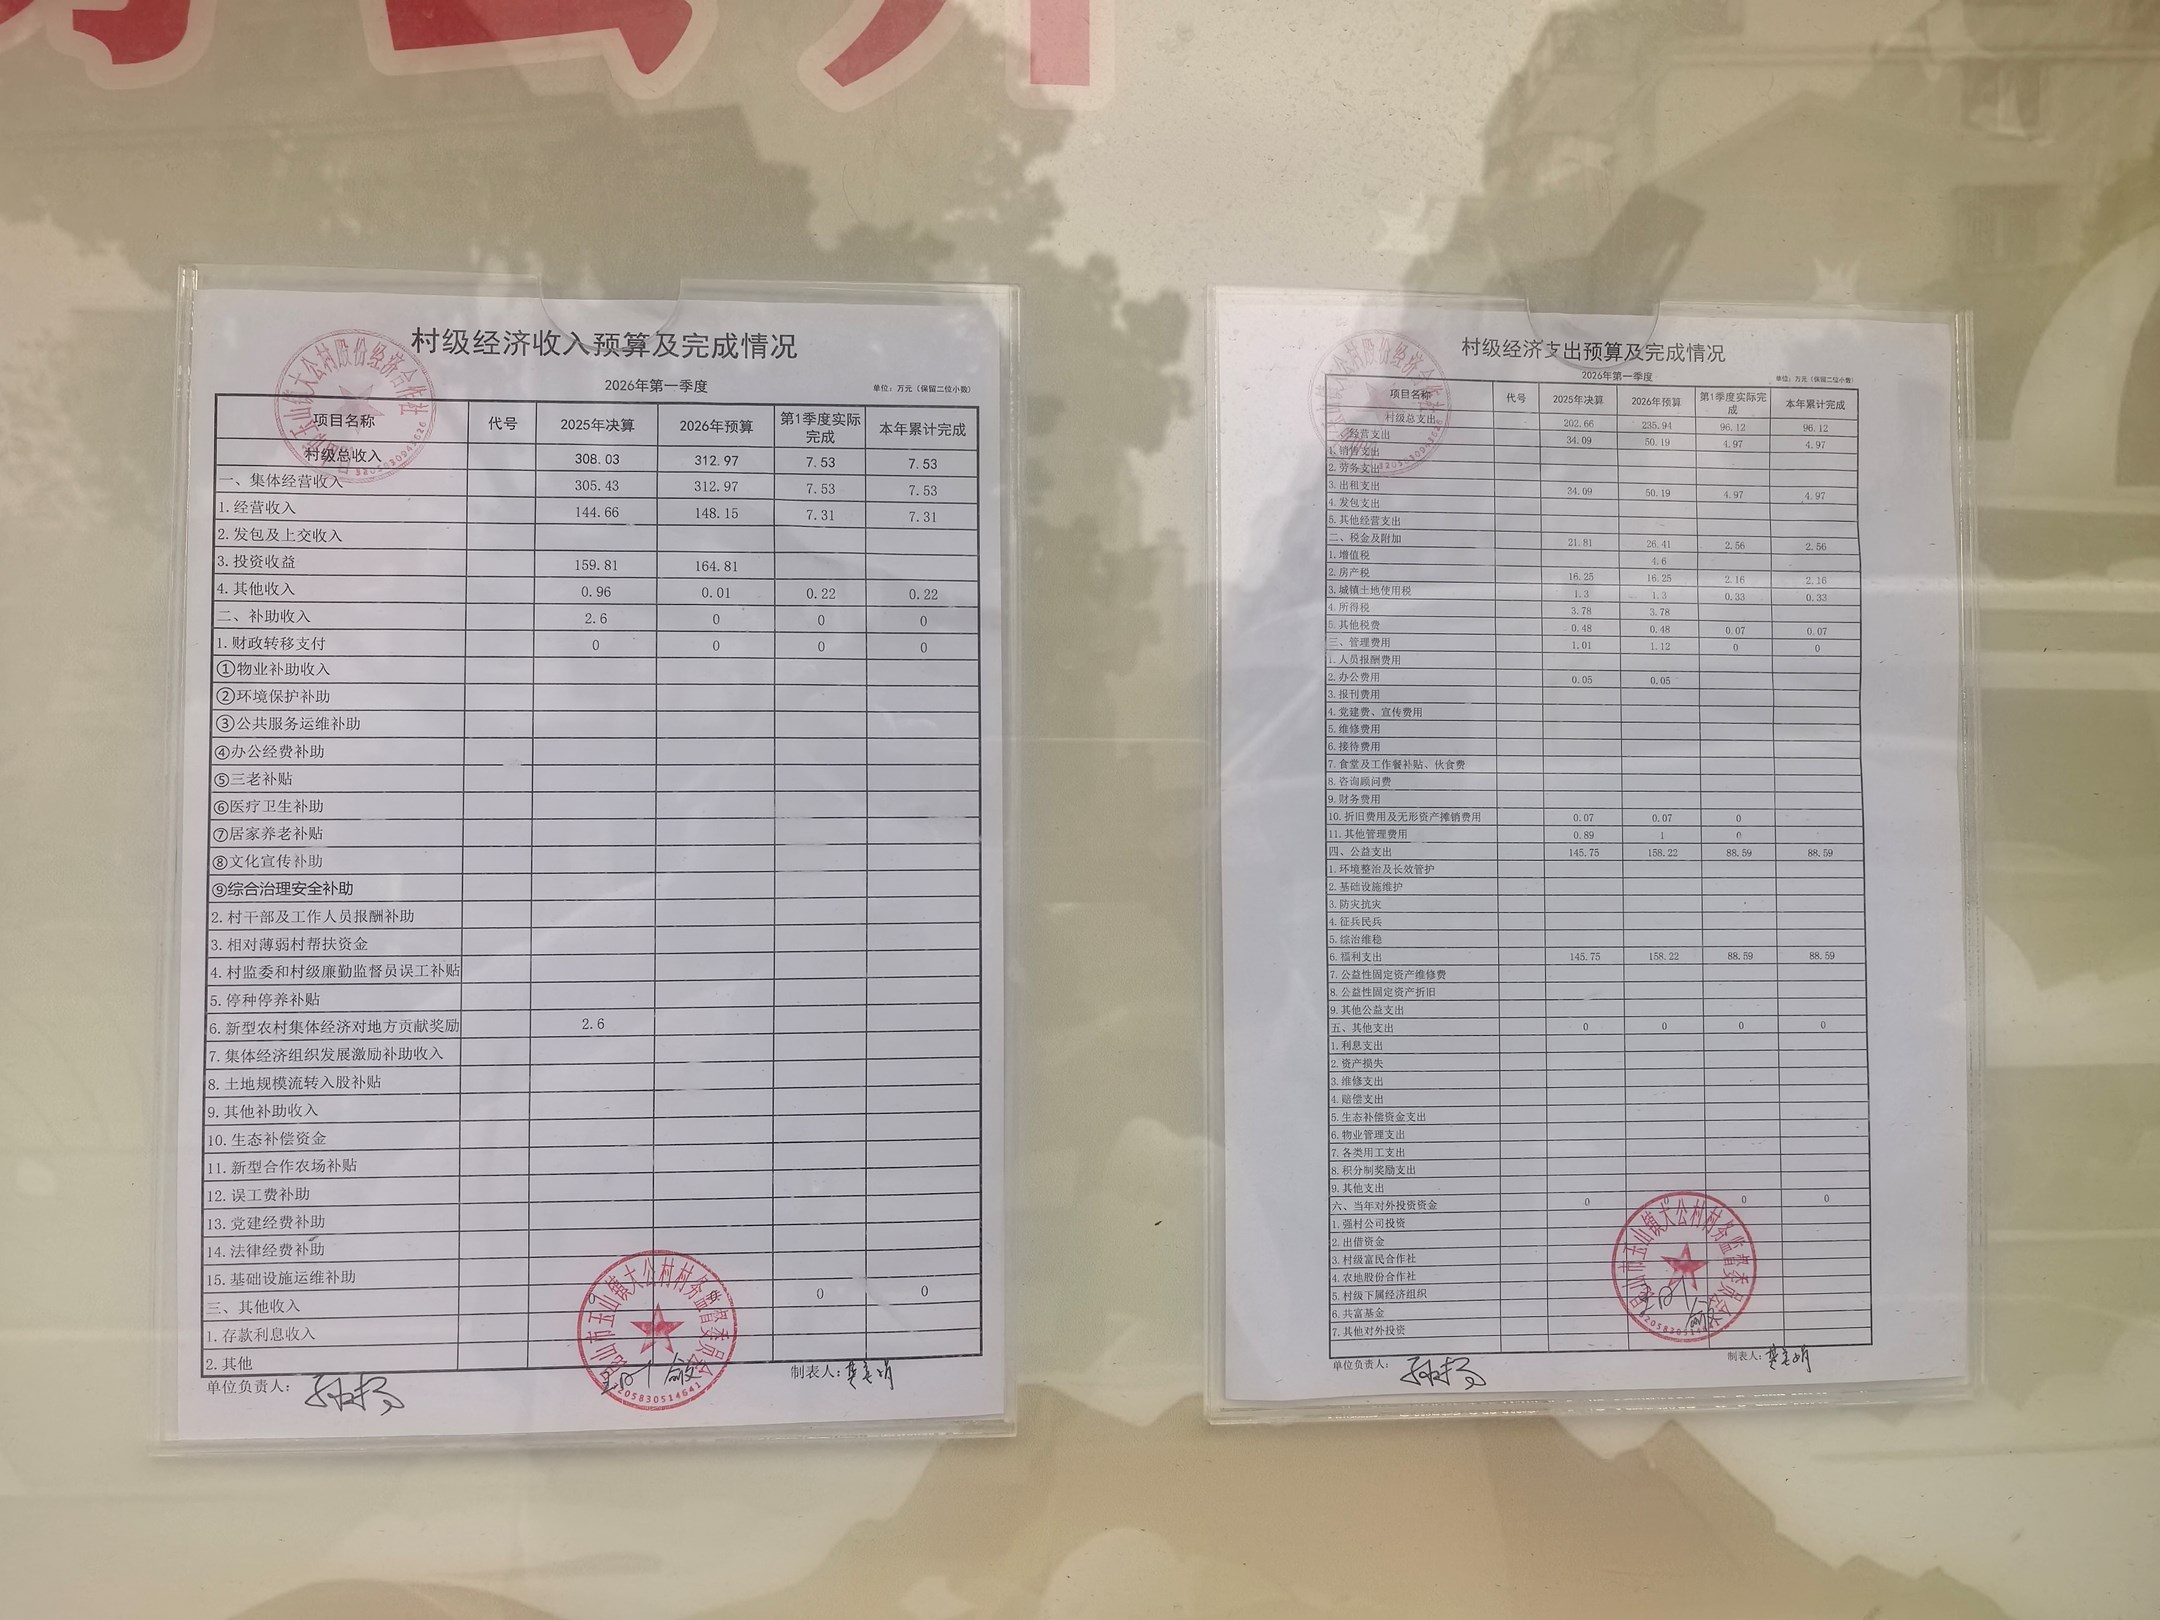 村级经济收入预算及完成情况
2026年第一季度
单位：万元（保留二位小数）
项目名称 代号 2025年决算 2026年预算 第1季度实际完成 本年累计完成
村级总收入 308.03 312.97 7.53 7.53
一、集体经营收入 305.43 312.97 7.53 7.53
1.经营收入 144.66 148.15 7.31 7.31
2.发包及上交收入
3.投资收益 159.81 164.81
4.其他收入 0.96 0.01 0.22 0.22
二、补助收入 2.6 0 0 0
1.财政转移支付 0 0 0 0
①物业补助收入
②环境保护补助
③公共服务运维补助
④办公经费补助
⑤三老补贴
⑥医疗卫生补助
⑦居家养老补贴
⑧文化宣传补助
⑨综合治理安全补助
2.村干部及工作人员报酬补助
3.相对薄弱村帮扶资金
4.村监委和村级廉勤监督员误工补贴
5.停种停养补贴
6.新型农村集体经济对地方贡献奖励 2.6
7.集体经济组织发展激励补助收入
8.土地规模流转入股补贴
9.其他补助收入
10.生态补偿资金
11.新型合作农场补贴
12.误工费补助
13.党建经费补助
14.法律经费补助
15.基础设施运维补助
三、其他收入 0 0 0 0
1.存款利息收入
2.其他
单位负责人：
制表人：
玉山镇大公村股份经济合作社
昆山市玉山镇大公村村务监督委员会
3205830514641
村级经济支出预算及完成情况
2026年第一季度
单位：万元（保留二位小数）
项目名称 代号 2025年决算 2026年预算 第1季度实际完成 本年累计完成
村级总支出 202.66 235.94 96.12 96.12
经营支出 34.09 50.19 4.97 4.97
1.销售支出
2.劳务支出
3.出租支出 34.09 50.19 4.97 4.97
4.发包支出
5.其他经营支出
二、税金及附加 21.81 26.41 2.56 2.56
1.增值税 4.6
2.房产税 16.25 16.25 2.16 2.16
3.城镇土地使用税 1.3 1.3 0.33 0.33
4.所得税 3.78 3.78
5.其他税费 0.48 0.48 0.07 0.07
三、管理费用 1.01 1.12 0 0
1.人员报酬费用
2.办公费用 0.05 0.05
3.报刊费用
4.党建费、宣传费用
5.维修费用
6.接待费用
7.食堂及工作餐补贴、伙食费
8.咨询顾问费
9.财务费用
10.折旧费用及无形资产摊销费用 0.07 0.07 0
11.其他管理费用 0.89 1 0
四、公益支出 145.75 158.22 88.59 88.59
1.环境整治及长效管护
2.基础设施维护
3.防灾抗灾
4.征兵民兵
5.综治维稳
6.福利支出 145.75 158.22 88.59 88.59
7.公益性固定资产维修费
8.公益性固定资产折旧
9.其他公益支出
五、其他支出 0 0 0 0
1.利息支出
2.资产损失
3.维修支出
4.赔偿支出
5.生态补偿资金支出
6.物业管理支出
7.各类用工支出
8.积分制奖励支出
9.其他支出
六、当年对外投资资金 0 0 0 0
1.强村公司投资
2.出借资金
3.村级富民合作社
4.农地股份合作社
5.村级下属经济组织
6.共富基金
7.其他对外投资
单位负责人：
制表人：
玉山镇大公村股份经济合作社
昆山市玉山镇大公村村务监督委员会